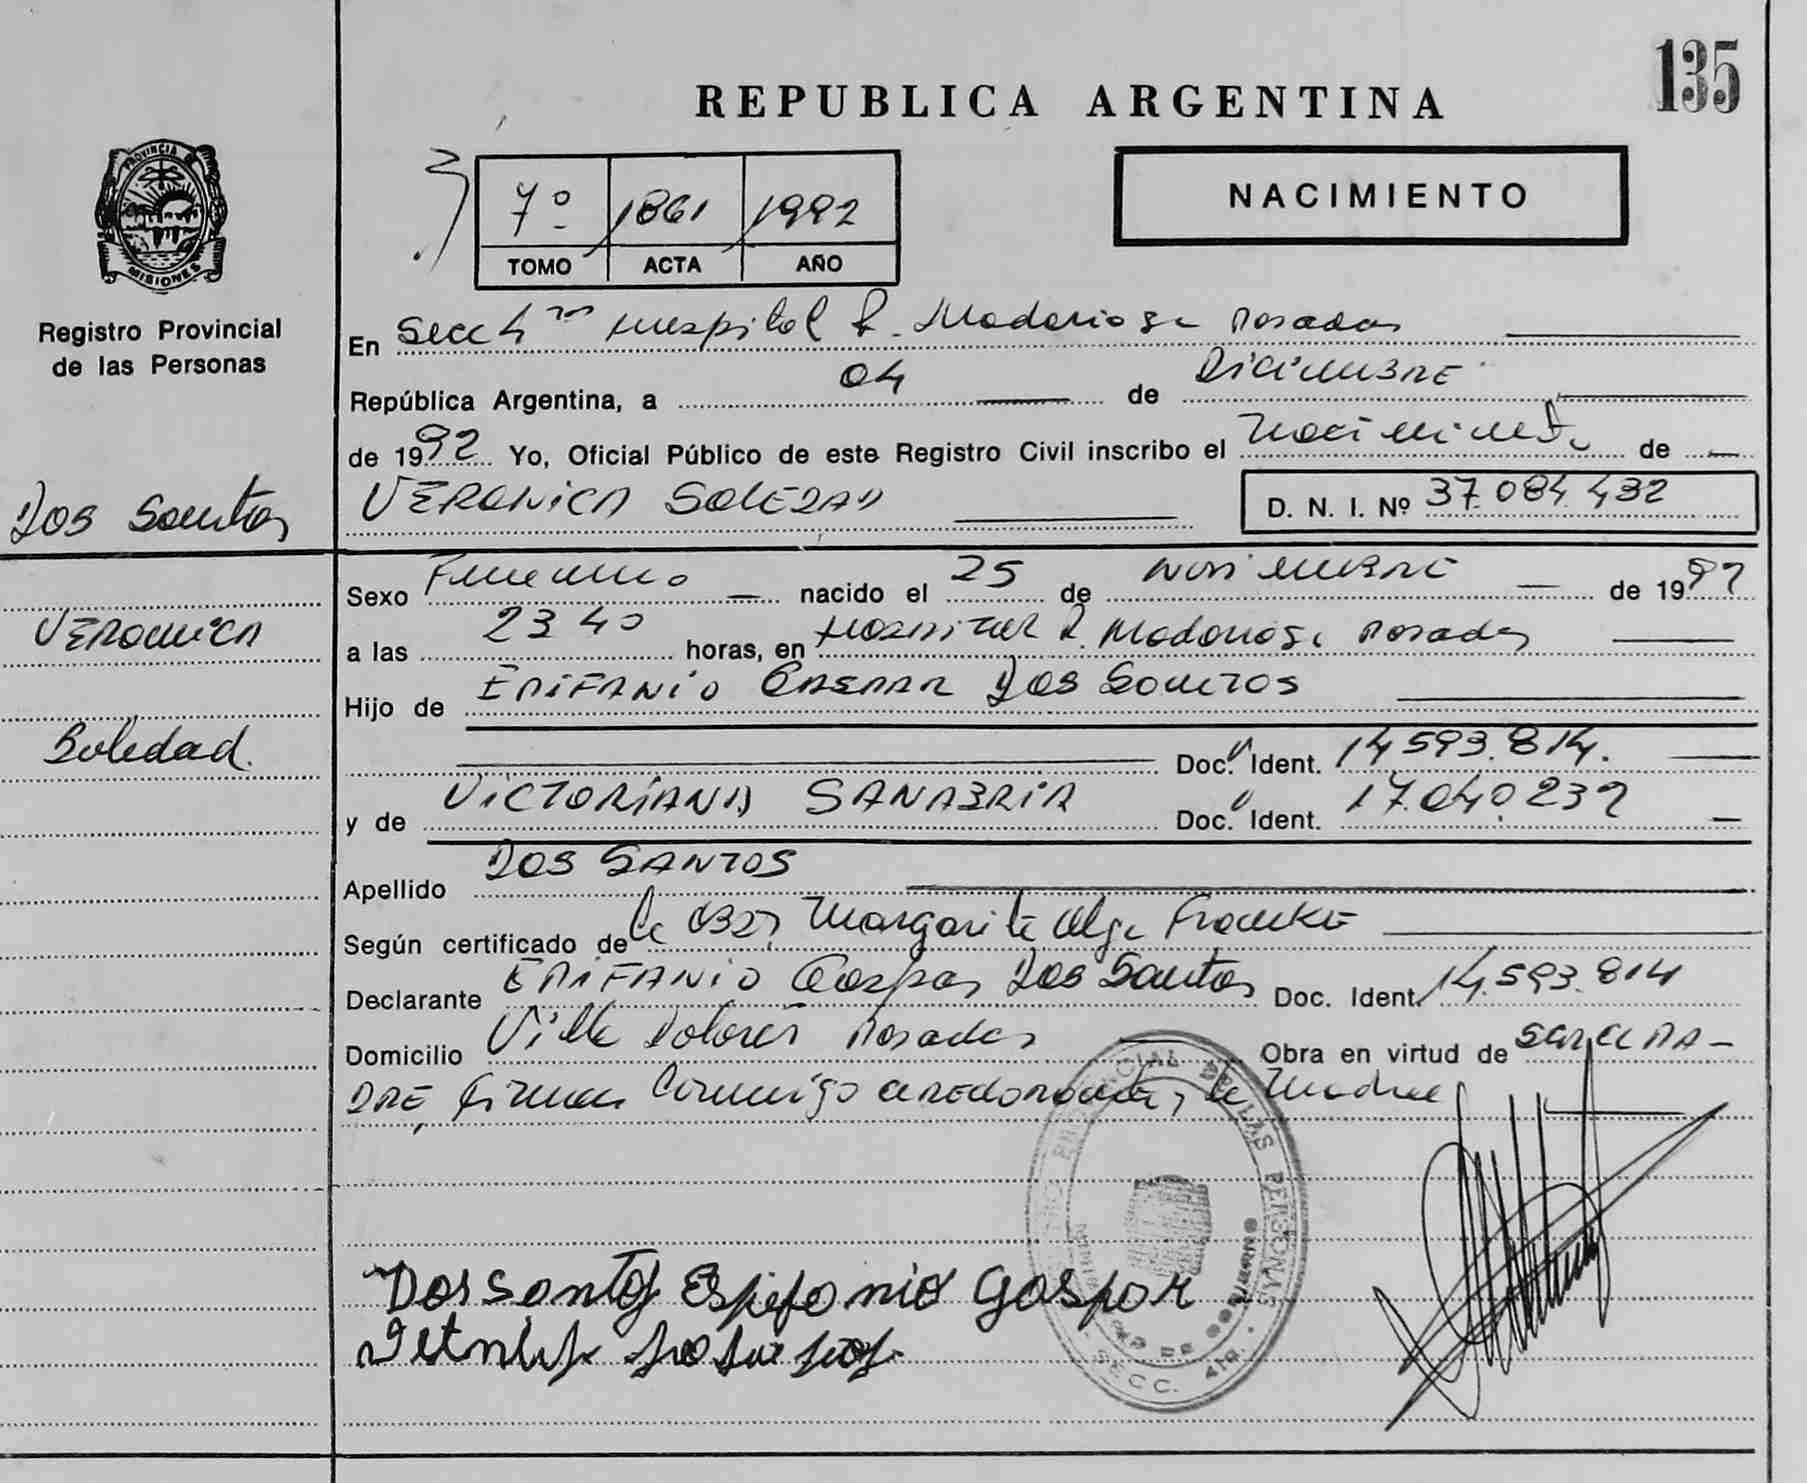 135
REPUBLICA ARGENTINA
NACIMIENTO
7º 1861 1992
TOMO ACTA AÑO
PROVINCIA DE
MISIONES
Registro Provincial
de las Personas
Dos Santos
Veronica
Soledad.
En Secc 4ta Hospital R. Madariaga Posadas
República Argentina, a 04 de Diciembre
de 1992 Yo, Oficial Público de este Registro Civil inscribo el Nacimiento de
VERONICA SOLEDAD D. N. I. Nº 37.084.432
Sexo Femenino nacido el 25 de Noviembre de 1992
a las 23 40 horas, en Hospital R. Madariaga Posadas
Hijo de EPIFANIO GASPAR DOS SANTOS
Doc. Ident. 14.593.814.
y de VICTORIANA SANABRIA Doc. Ident. 17.040.232
Apellido DOS SANTOS
Según certificado de la Obst, Margarita Olga Franke
Declarante EPIFANIO Gaspar Dos Santos Doc. Ident. 14.593.814
Domicilio Villa Dolores Posadas Obra en virtud de ser el PA-
DRE, firman conmigo el declarante y la Madre
Dos santos Espifanio Gaspar
PROVINCIAL DE LAS PERSONAS
DE GOBIERNO
SECC. 4ta.